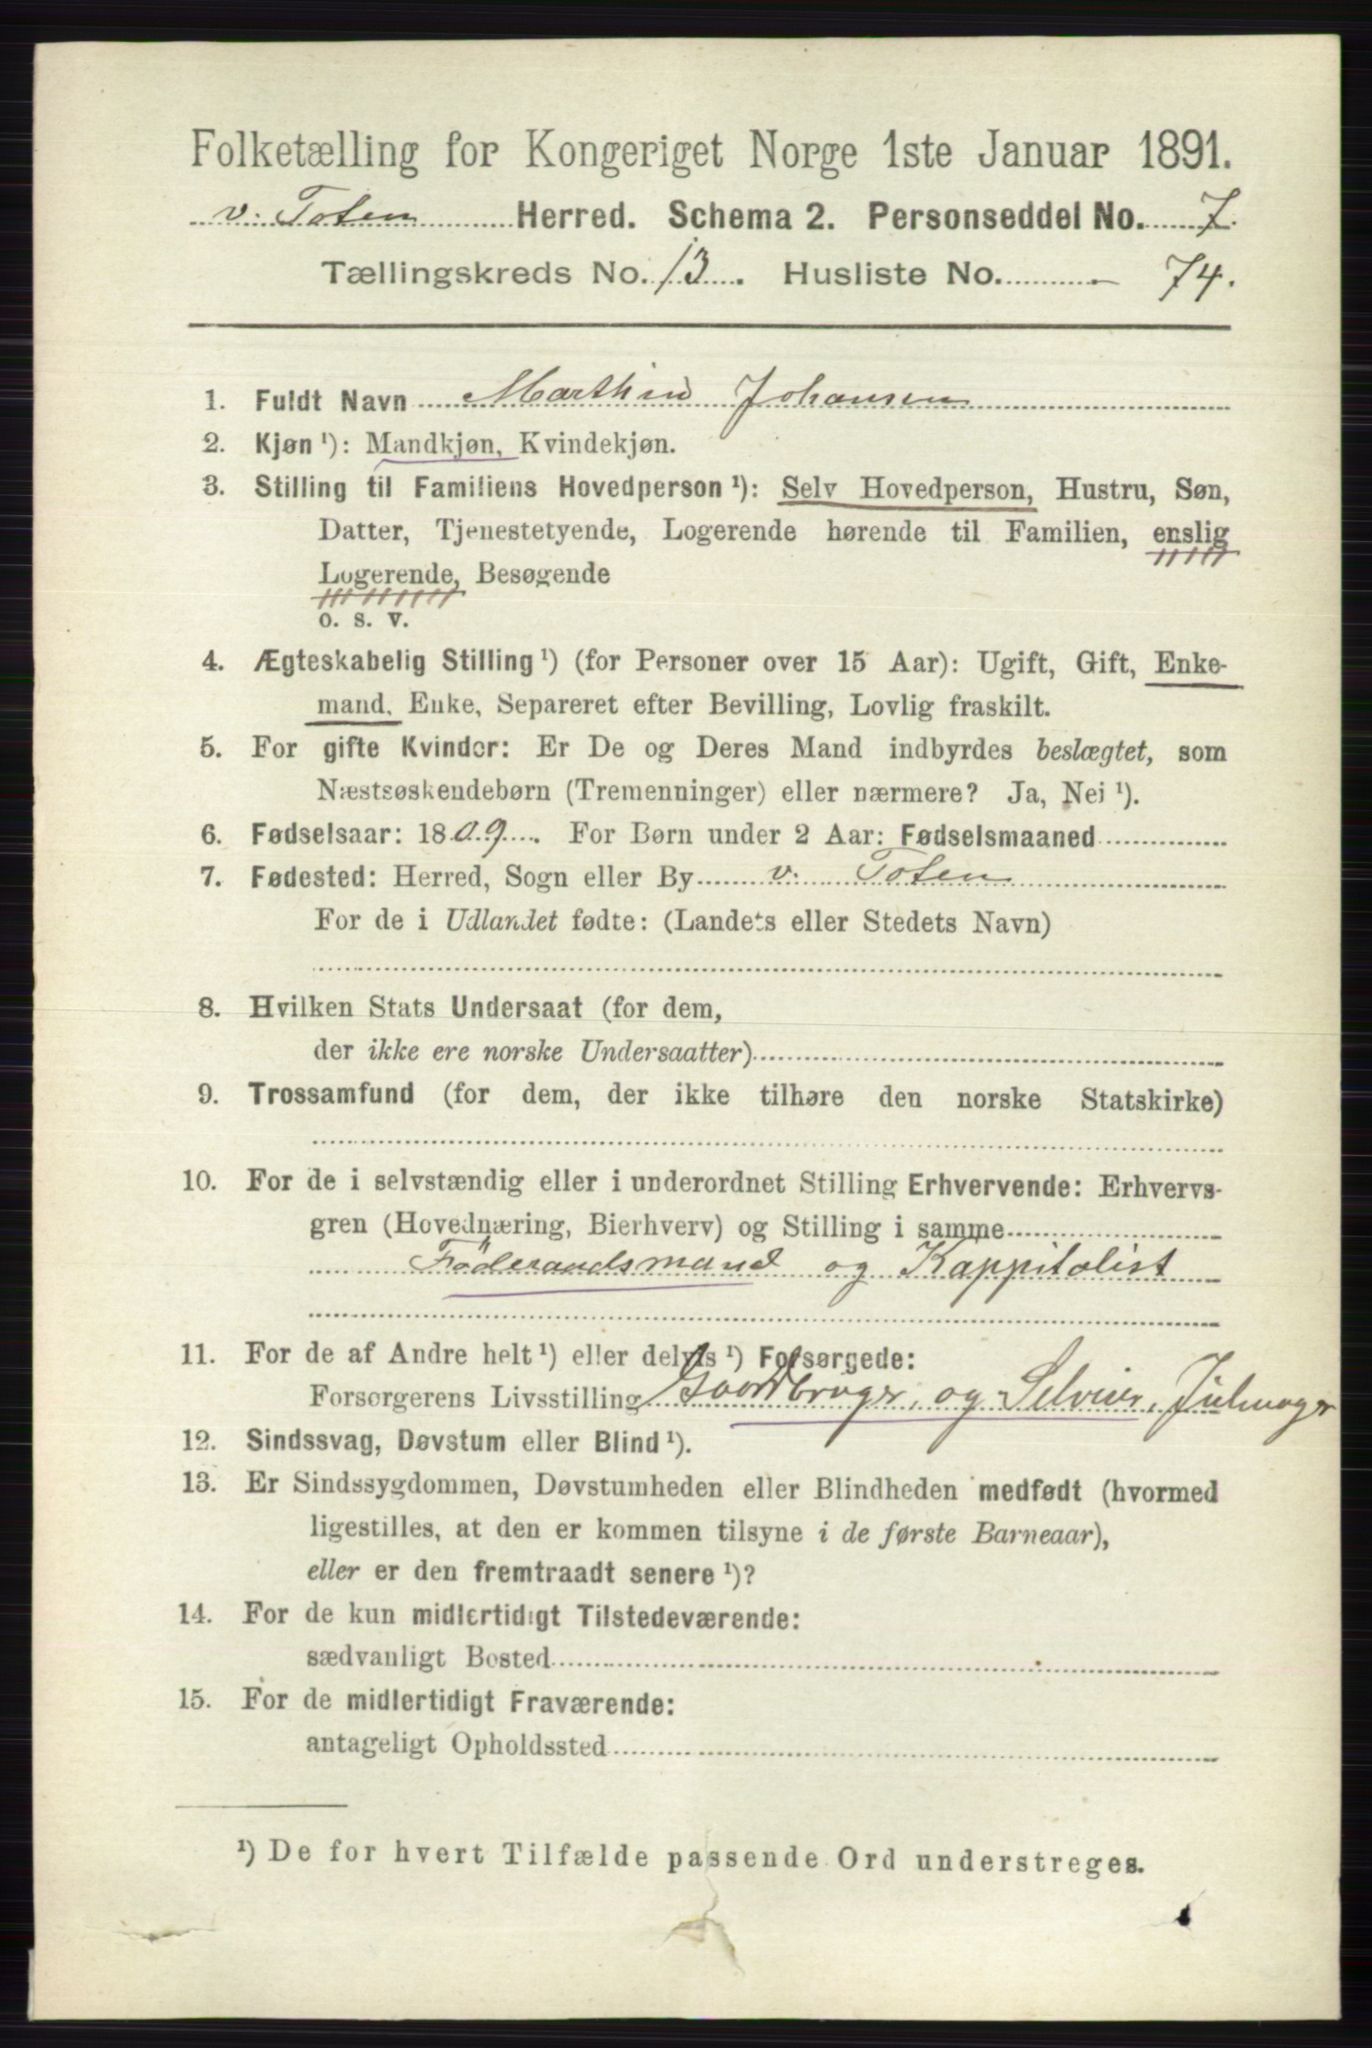 Folketælling for Kongeriget Norge 1ste Januar 1891.
v. Toten Herred. Schema 2. Personseddel No. 7.
Tællingskreds No. 13. Husliste No. 74.
1. Fuldt Navn Marthin Johansen
2. Kjøn ¹): Mandkjøn, Kvindekjøn.
3. Stilling til Familiens Hovedperson ¹): Selv Hovedperson, Hustru, Søn,
Datter, Tjenestetyende, Logerende hørende til Familien, enslig
Logerende, Besøgende
o. s. v.
4. Ægteskabelig Stilling ¹) (for Personer over 15 Aar): Ugift, Gift, Enke-
mand, Enke, Separeret efter Bevilling, Lovlig fraskilt.
5. For gifte Kvinder: Er De og Deres Mand indbyrdes beslægtet, som
Næstsøskendebørn (Tremenninger) eller nærmere? Ja, Nei ¹).
6. Fødselsaar: 1809. For Børn under 2 Aar: Fødselsmaaned
7. Fødested: Herred, Sogn eller By v. Toten
For de i Udlandet fødte: (Landets eller Stedets Navn)
8. Hvilken Stats Undersaat (for dem,
der ikke ere norske Undersaatter)
9. Trossamfund (for dem, der ikke tilhøre den norske Statskirke)
10. For de i selvstændig eller i underordnet Stilling Erhvervende: Erhvervs-
gren (Hovednæring, Bierhverv) og Stilling i samme
Föderaadsmand og Kappitalist
11. For de af Andre helt ¹) eller delvis ¹) Forsørgede:
Forsørgerens Livsstilling Gaardbruger, og Selveier,
12. Sindssvag, Døvstum eller Blind ¹).
13. Er Sindssygdommen, Døvstumheden eller Blindheden medfødt (hvormed
ligestilles, at den er kommen tilsyne i de første Barneaar),
eller er den fremtraadt senere ¹)?
14. For de kun midlertidigt Tilstedeværende:
sædvanligt Bosted
15. For de midlertidigt Fraværende:
antageligt Opholdssted
¹) De for hvert Tilfælde passende Ord understreges.